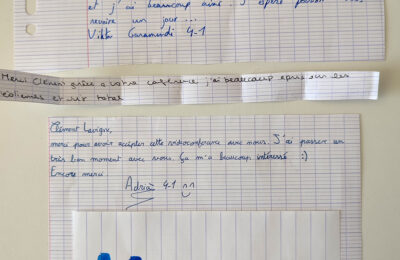 et j'ai beaucoup aimé. J'espère pouvoir vous
revoire un jour...
Viktor Garamendi 4-1
Merci Clément grâce a votre conférence j'ai beaucoup apris sur les
et sur
Clément Lavigne,
merci pour avoir accépter cette radioconférence avec nous. J'ai passer un
très bon moment avec vous. Ça m'a beaucoup intéressé :)
Encore merci
Adrien 4-1